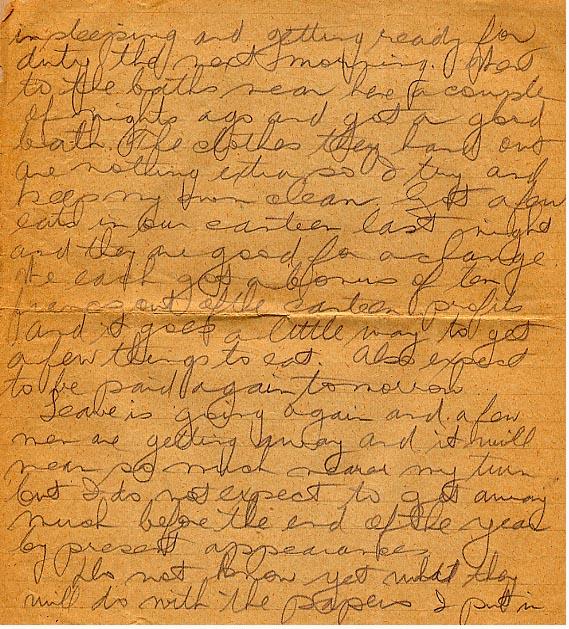 in sleeping and getting ready for
duty the next morning. Went
to the baths near here a couple
of nights ago and got a good
bath. The clothes they hand out
are nothing extra so I try and
keep my own clean. Got a few
eats in our canteen last night
and they are good for a change.
We each got a bonus of ten
francs out of the canteen profits
and it goes a little way to get
a few things to eat. Also expect
to be paid again tomorrow.
Leave is going again and a few
men are getting away and it will
mean so much nearer my turn
but I do not expect to get away
much before the end of the year
by present appearances.
Do not know yet what they
will do with the papers I put in